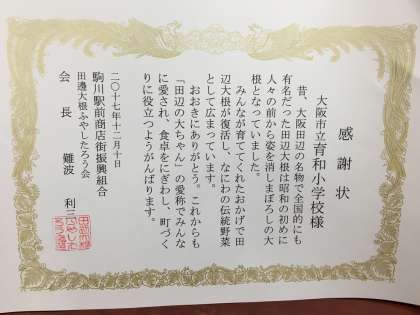 感謝状
大阪市立育和小学校様
昔、大阪田辺の名物で全国的にも
有名だった田辺大根は昭和の初めに
人々の前から姿を消しまぼろしの大
根となっていました。
みんなが育ててくれたおかげで田
辺大根が復活し、なにわの伝統野菜
として広まっています。
おおきにありがとう。これからも
「田辺の大ちゃん」の愛称でみんな
に愛され、食卓をにぎわし、町づく
りに役立つようがんばります。
二〇十七年十二月十日
駒川駅前商店街振興組合
田邊大根ふやしたろう会
会長 難波 利